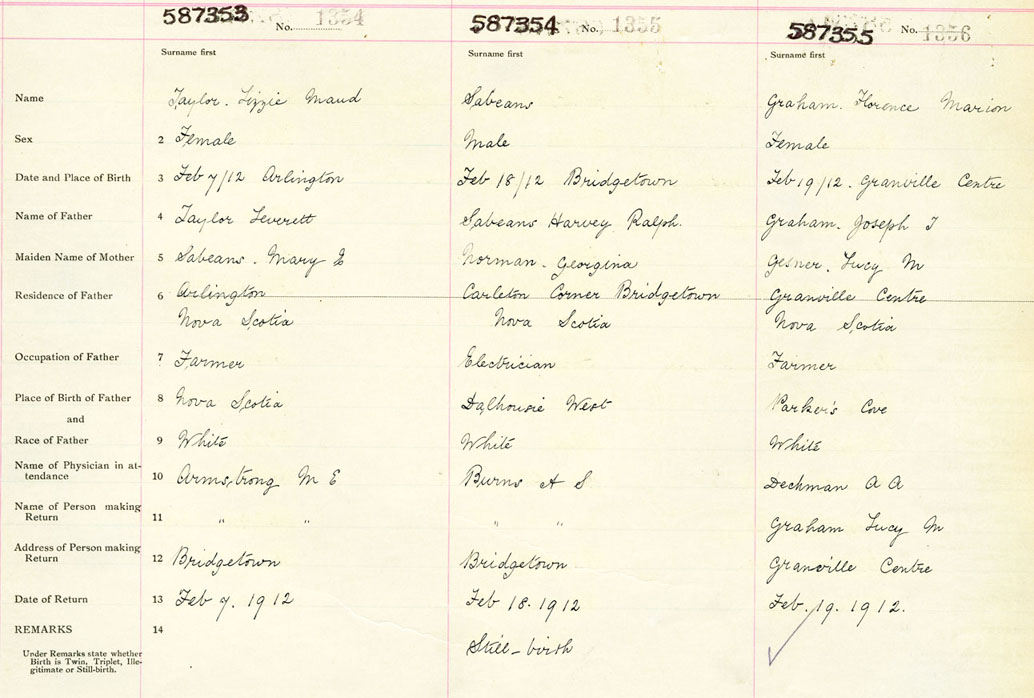 587353 No. 1354 587354 No. 1355 587355 No. 1356
Surname first Surname first Surname first
Name Taylor. Lizzie Maud Sabeans Graham. Florence Marion
Sex 2 Female Male Female
Date and Place of Birth 3 Feb 7/12 Arlington Feb 18/12 Bridgetown Feb 19/12. Granville Centre
Name of Father 4 Taylor Leverett Sabeans Harvey Ralph. Graham. Joseph I
Maiden Name of Mother 5 Sabeans. Mary E Norman. Georgina Gesner. Lucy M
Residence of Father 6 Arlington Carleton Corner Bridgetown Granville Centre
Nova Scotia Nova Scotia Nova Scotia
Occupation of Father 7 Farmer Electrician Farmer
Place of Birth of Father 8 Nova Scotia Dalhousie West Parker's Cove
and
Race of Father 9 White White White
Name of Physician in at-
tendance 10 Armstrong M E Burns A S Deckman A A
Name of Person making
Return 11 " " " " Graham Lucy M
Address of Person making
Return 12 Bridgetown Bridgetown Granville Centre
Date of Return 13 Feb 7. 1912 Feb 18. 1912 Feb. 19. 1912.
REMARKS 14
Still-birth
Under Remarks state whether
Birth is Twin, Triplet, Ille-
gitimate or Still-birth.